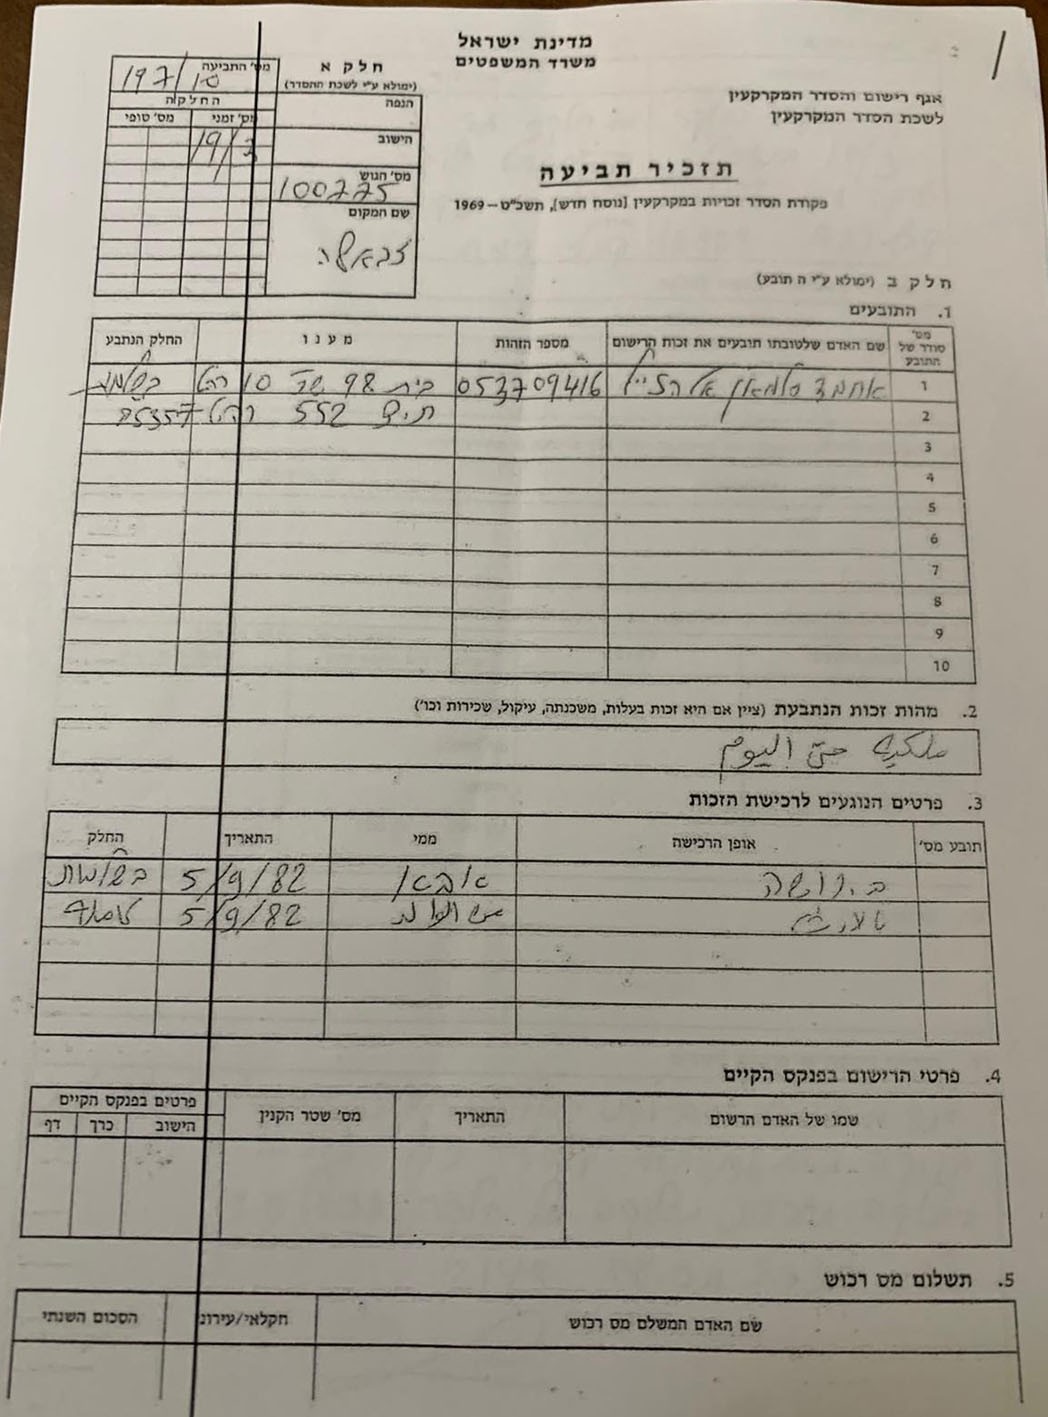 מדינת ישראל
משרד המשפטים
אגף רישום והסדר המקרקעין
לשכת הסדר המקרקעין
תזכיר תביעה
פקודת הסדר זכויות במקרקעין [נוסח חדש], תשכ"ט – 1969
חלק א
(ימולא ע"י לשכת ההסדר)
מס' התביעה
197/10
החלקה
מס' זמני
מס' סופי
19/3
הנפה
הישוב
מס' הגוש
100225
שם המקום
חלק ב (ימולא ע"י ה תובע)
1. התובעים
מס' סודר של התובע
שם האדם שלטובתו תובעים את זכות הרישום
מספר הזהות
מענו
החלק הנתבע
1 אחמד סלמאן 053709416 בית 98 שכ 10 רהט בשלמות
2 ת.ד 552 רהט 85357
3
4
5
6
7
8
9
10
2. מהות זכות הנתבעת (ציין אם היא זכות בעלות, משכנתה, עיקול, שכירות וכו')
ملكية حتى اليوم
3. פרטים הנוגעים לרכישת הזכות
תובע מס'
אופן הרכישה
ממי
התאריך
החלק
בירושה מאבא 5/9/82 בשלמות
5/9/82
4. פרטי הרישום בפנקס הקיים
שמו של האדם הרשום
התאריך
מס' שטר הקנין
פרטים בפנקס הקיים
הישוב
כרך
דף
5. תשלום מס רכוש
שם האדם המשלם מס רכוש
חקלאי/עירוני
הסכום השנתי